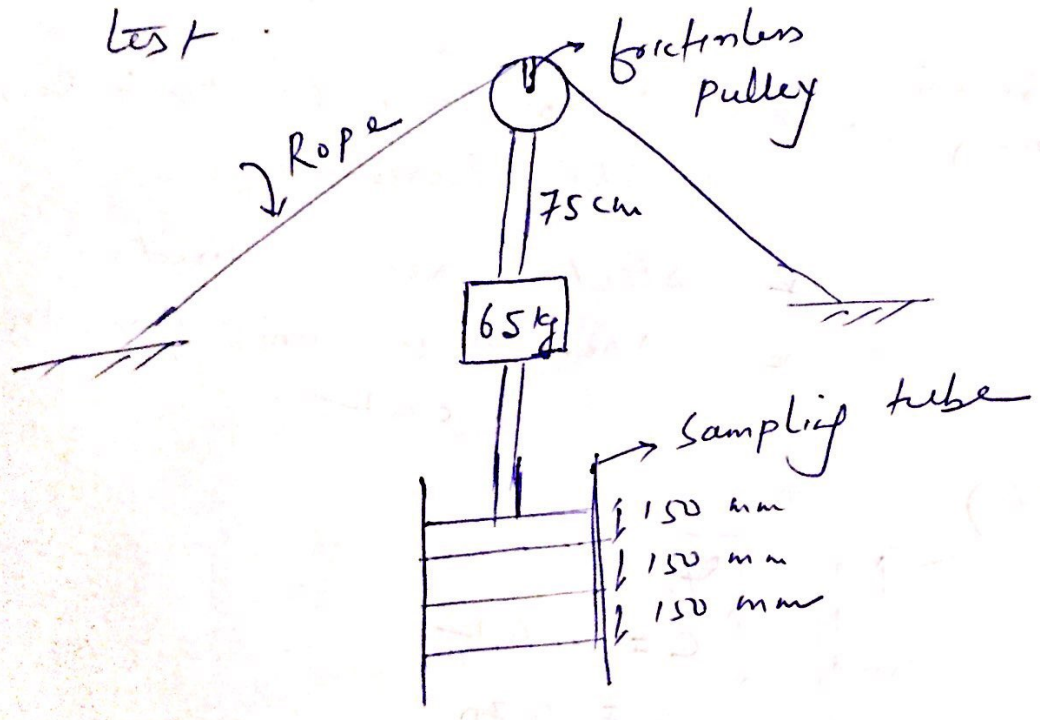 test .
frictionless
pulley
Rope
75 cm
65 kg
sampling tube
150 mm
150 mm
150 mm